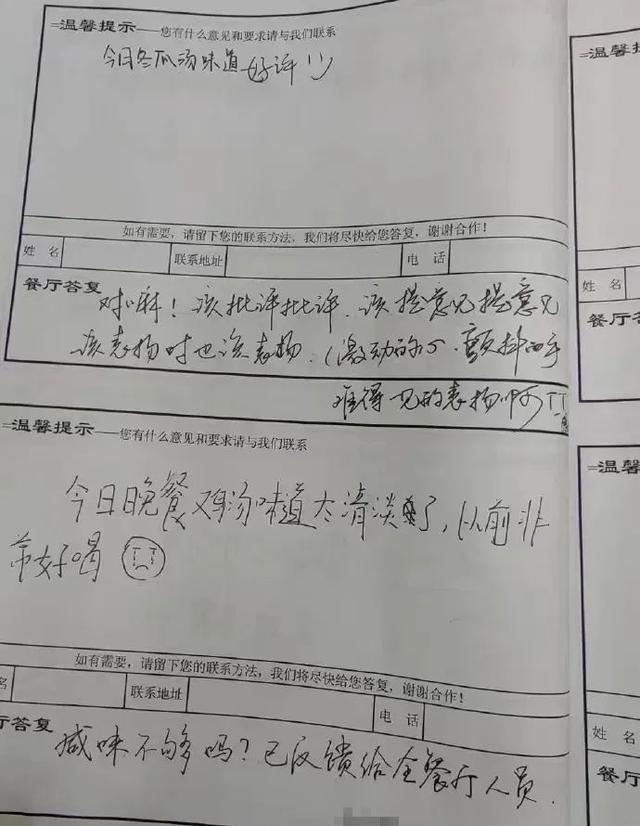 =温馨提示——您有什么意见和要求请与我们联系
今日冬瓜汤味道好评!!
如有需要，请留下您的联系方法，我们将尽快给您答复，谢谢合作！
姓 名 联系地址 电 话
餐厅答复
对嘛！该批评批评．该提意见提意见
该表扬时也该表扬．(激动的心．颤抖的手
难得一见的表扬啊TT
=温馨提示——您有什么意见和要求请与我们联系
今日晚餐鸡汤味道太清淡了，以前非
常好喝
如有需要，请留下您的联系方法，我们将尽快给您答复，谢谢合作！
名 联系地址 电 话
厅答复
咸味不够吗？已反馈给全餐厅人员．
=温馨提
姓 名
餐厅答
=温馨
姓 名
餐厅